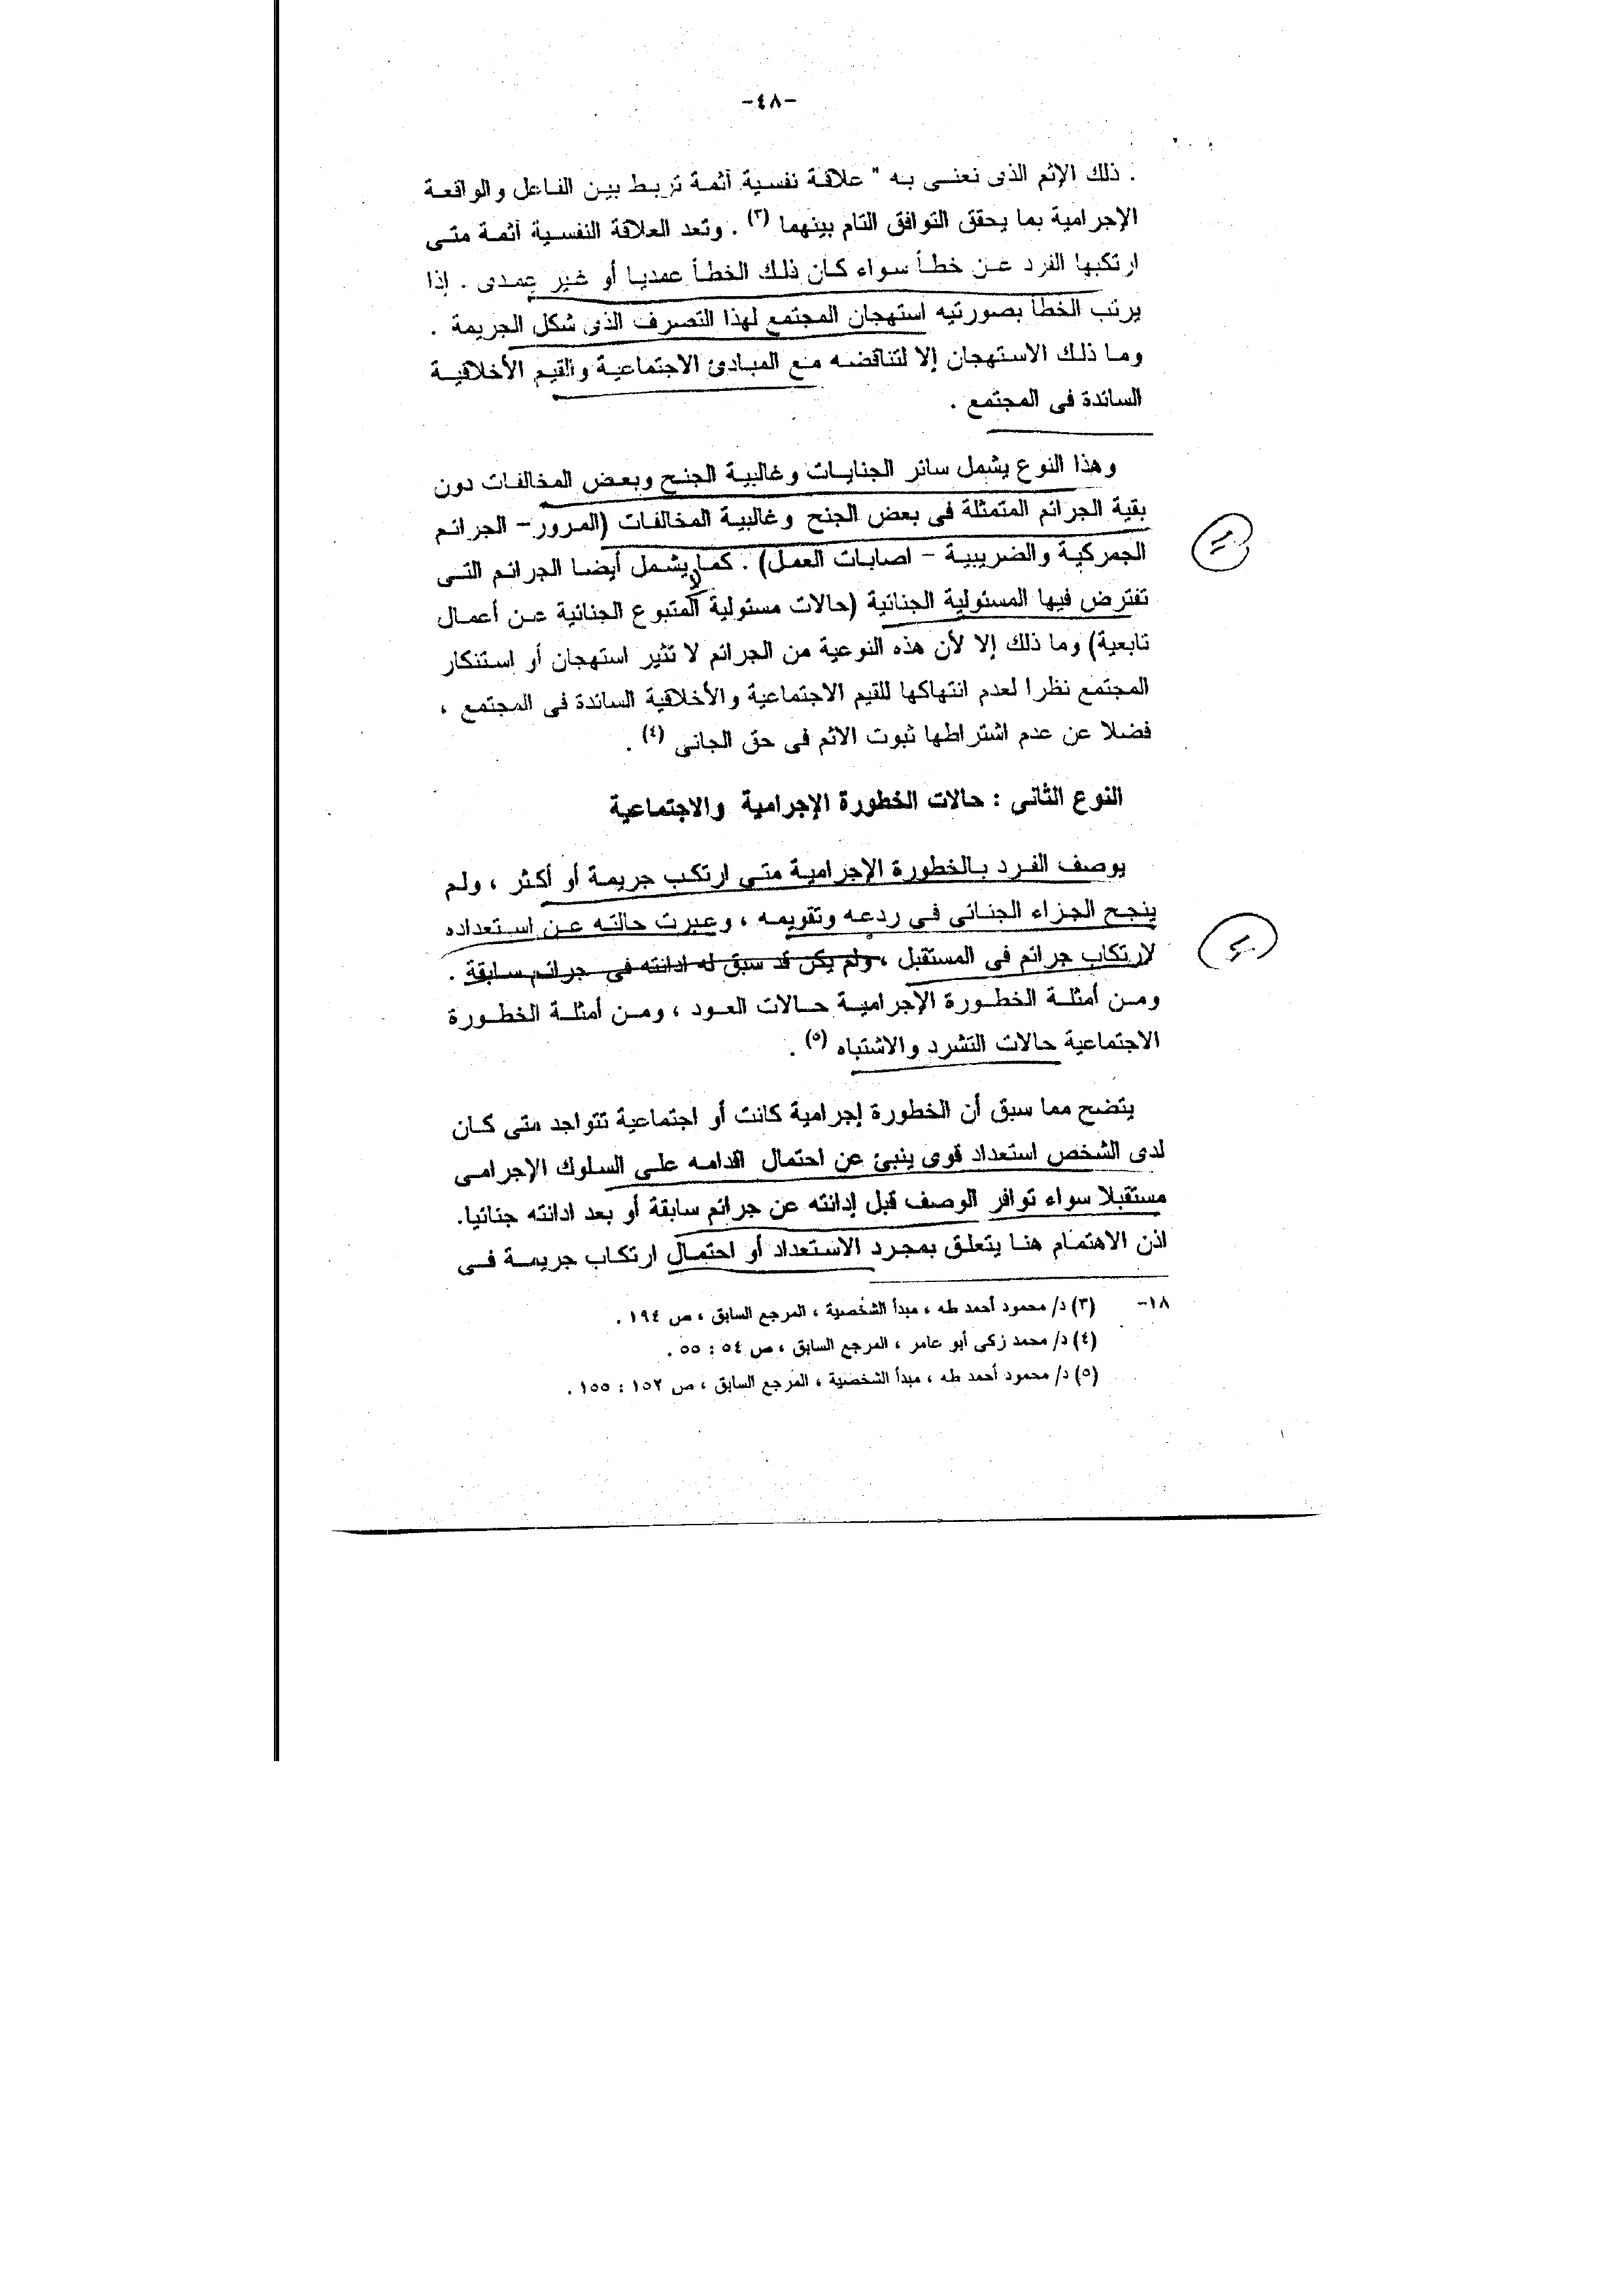 -٤٨-
. ذلك الإثم الذى نعنى به " علاقة نفسية آثمة تربط بين الفاعل والواقعة
الإجرامية بما يحقق التوافق التام بينهما (٣) . وتعد العلاقة النفسية آثمة متى
ارتكبها الفرد عن خطأ سواء كان ذلك الخطأ عمديا أو غير عمدى . إذا
يرتب الخطأ بصورتيه استهجان المجتمع لهذا التصرف الذى شكل الجريمة .
وما ذلك الاستهجان إلا لتناقضه مع المبادئ الاجتماعية والقيم الأخلاقية
السائدة فى المجتمع .
وهذا النوع يشمل سائر الجنايات وغالبية الجنح وبعض المخالفات دون
بقية الجرائم المتمثلة فى بعض الجنح وغالبية المخالفات (المرور - الجرائم
الجمركية والضريبية - اصابات العمل) . كما لا يشمل أيضا الجرائم التى
تفترض فيها المسئولية الجنائية (حالات مسئولية المتبوع الجنائية عن أعمال
تابعية) وما ذلك إلا لأن هذه النوعية من الجرائم لا تثير استهجان أو إستنكار
المجتمع نظرا لعدم انتهاكها للقيم الاجتماعية والأخلاقية السائدة فى المجتمع ،
فضلا عن عدم اشتراطها ثبوت الاثم فى حق الجانى (٤) .
النوع الثانى : حالات الخطورة الإجرامية والاجتماعية
يوصف الفرد بالخطورة الإجرامية متى ارتكب جريمة أو أكثر ، ولم
ينجح الجزاء الجنائى فى ردعه وتقويمه ، وعبرت حالته عن استعداده
لارتكاب جرائم فى المستقبل ، ولم يكن قد سبق له ادانته فى جرائم سابقة .
ومن أمثلة الخطورة الإجرامية حالات العود ، ومن أمثلة الخطورة
الاجتماعية حالات التشرد والاشتباه (٥) .
يتضح مما سبق أن الخطورة إجرامية كانت أو اجتماعية تتواجد متى كان
لدى الشخص استعداد قوى ينبئ عن احتمال اقدامه على السلوك الإجرامى
مستقبلا سواء توافر الوصف قبل إدانته عن جرائم سابقة أو بعد ادانته جنائيا.
اذن الاهتمام هنا يتعلق بمجرد الاستعداد أو احتمال ارتكاب جريمة فى
١٨- (٣) د/ محمود أحمد طه ، مبدأ الشخصية ، المرجع السابق ، ص ١٩٤ .
(٤) د/ محمد زكى أبو عامر ، المرجع السابق ، ص ٥٤ : ٥٥ .
(٥) د/ محمود أحمد طه ، مبدأ الشخصية ، المرجع السابق ، ص ١٥٢ : ١٥٥ .